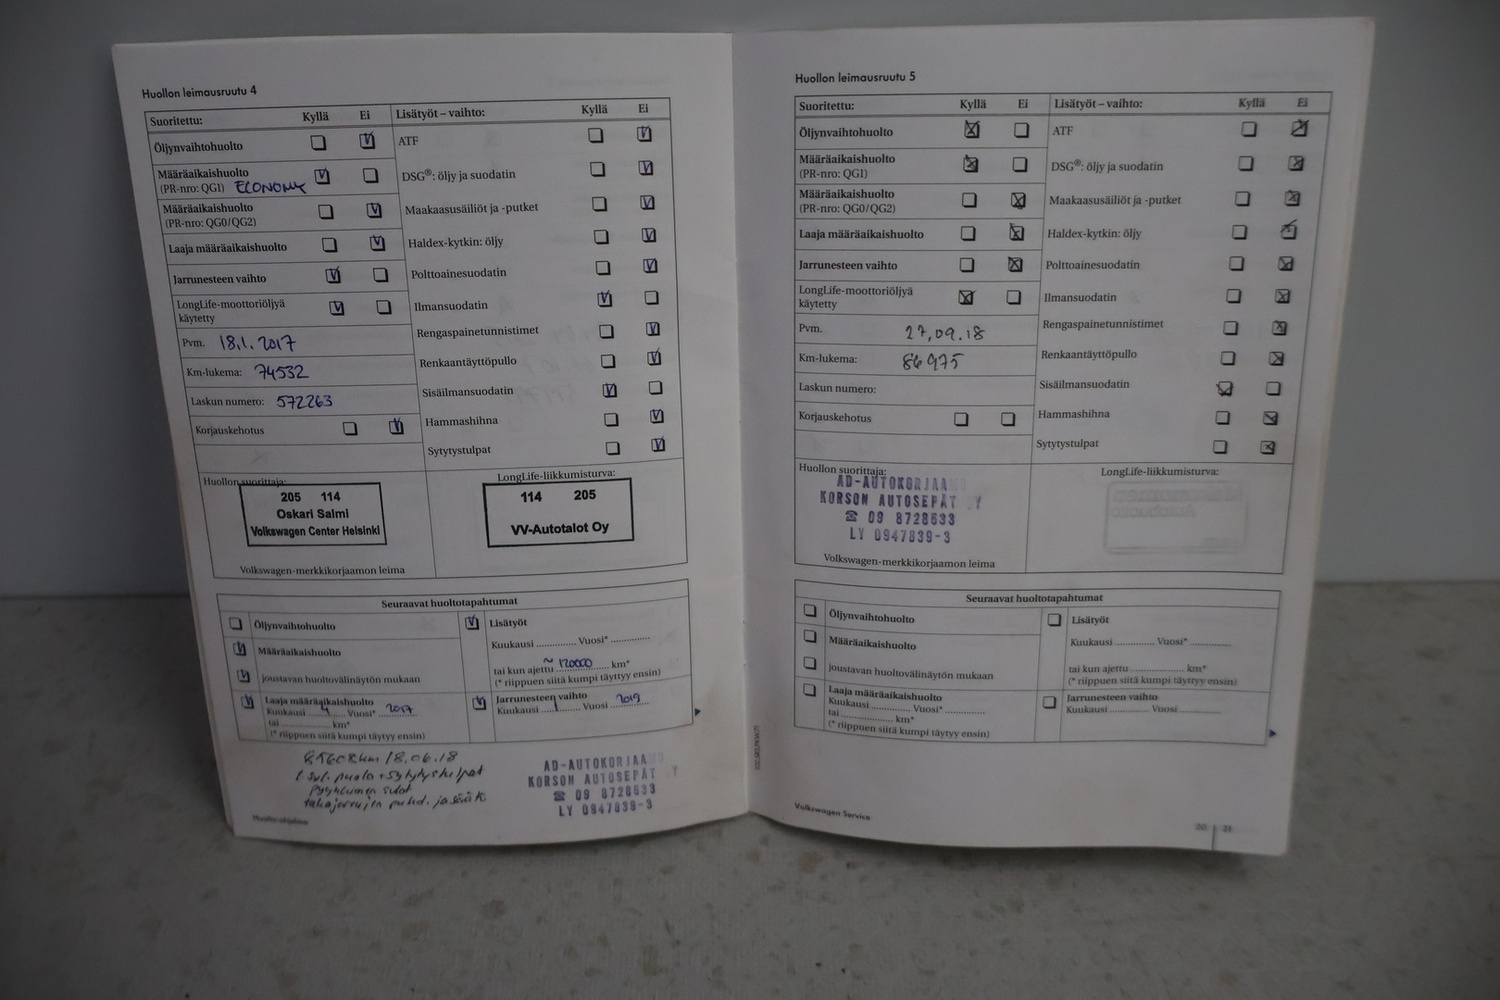 Huollon leimausruutu 4
Suoritettu: Kyllä Ei
Öljynvaihtohuolto
Määräaikaishuolto
(PR-nro: QG1) ECONOMY
Määräaikaishuolto
(PR-nro: QG0/QG2)
Laaja määräaikaishuolto
Jarrunesteen vaihto
LongLife-moottoriöljyä
käytetty
Pvm. 18.1.2017
Km-lukema: 74532
Laskun numero: 572263
Korjauskehotus
Lisätyöt – vaihto: Kyllä Ei
ATF
DSG®: öljy ja suodatin
Maakaasusäiliöt ja -putket
Haldex-kytkin: öljy
Polttoainesuodatin
Ilmansuodatin
Rengaspainetunnistimet
Renkaantäyttöpullo
Sisäilmansuodatin
Hammashihna
Sytytystulpat
Huollon suorittaja:
205 114
Oskari Salmi
Volkswagen Center Helsinki
Volkswagen-merkkikorjaamon leima
LongLife-liikkumisturva:
114 205
VV-Autotalot Oy
Seuraavat huoltotapahtumat
Öljynvaihtohuolto
Määräaikaishuolto
joustavan huoltovälinäytön mukaan
Laaja määräaikaishuolto
Kuukausi 4 Vuosi* 2017
tai .................... km*
(* riippuen siitä kumpi täytyy ensin)
Lisätyöt
Kuukausi ............ Vuosi* ............
tai kun ajettu ~ 120000 km*
(* riippuen siitä kumpi täytyy ensin)
Jarrunesteen vaihto
Kuukausi 1 Vuosi 2019
18.06.18
puola + sytytystulpat
takajarrujen puhd. ja säätö
AD-AUTOKORJAAMO
KORSON AUTOSEPÄT Y
☎ 09 8728633
LY 0947839-3
Huolto-ohjelma
Huollon leimausruutu 5
Suoritettu: Kyllä Ei
Öljynvaihtohuolto
Määräaikaishuolto
(PR-nro: QG1)
Määräaikaishuolto
(PR-nro: QG0/QG2)
Laaja määräaikaishuolto
Jarrunesteen vaihto
LongLife-moottoriöljyä
käytetty
Pvm. 27.09.18
Km-lukema: 86975
Laskun numero:
Korjauskehotus
Lisätyöt – vaihto: Kyllä Ei
ATF
DSG®: öljy ja suodatin
Maakaasusäiliöt ja -putket
Haldex-kytkin: öljy
Polttoainesuodatin
Ilmansuodatin
Rengaspainetunnistimet
Renkaantäyttöpullo
Sisäilmansuodatin
Hammashihna
Sytytystulpat
Huollon suorittaja:
AD-AUTOKORJAAMO
KORSON AUTOSEPÄT Y
☎ 09 8728633
LY 0947839-3
Volkswagen-merkkikorjaamon leima
LongLife-liikkumisturva:
Seuraavat huoltotapahtumat
Öljynvaihtohuolto
Määräaikaishuolto
joustavan huoltovälinäytön mukaan
Laaja määräaikaishuolto
Kuukausi ............ Vuosi* ............
tai .................... km*
(* riippuen siitä kumpi täytyy ensin)
Lisätyöt
Kuukausi ............ Vuosi* ............
tai kun ajettu .................... km*
(* riippuen siitä kumpi täytyy ensin)
Jarrunesteen vaihto
Kuukausi ............ Vuosi ............
Volkswagen Service
20 | 21